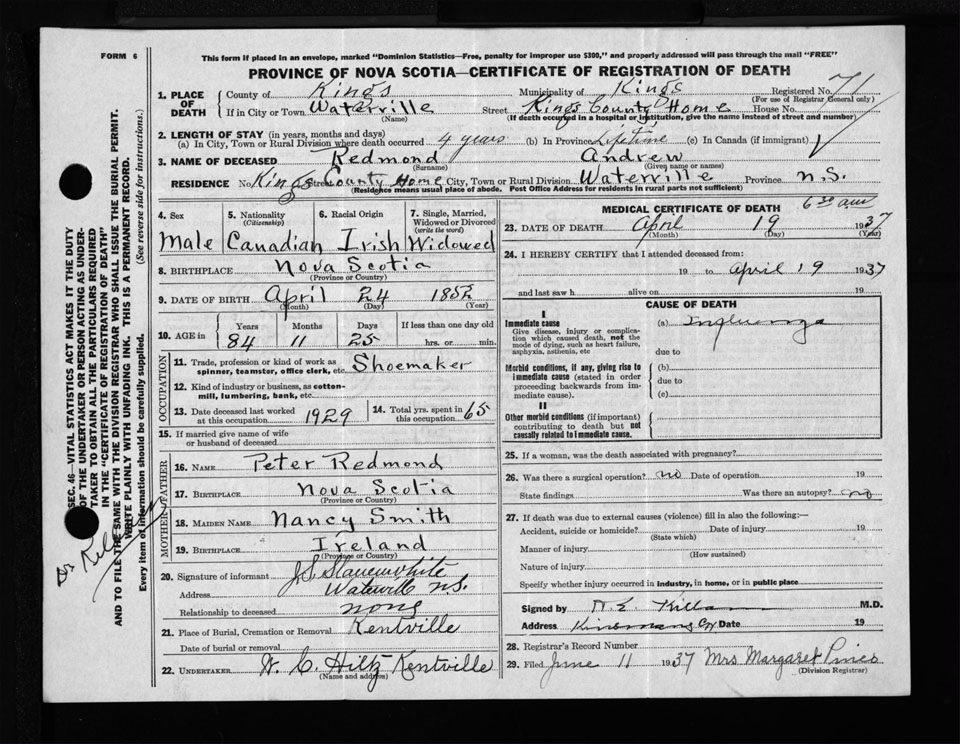 FORM 6
This form if placed in an envelope, marked "Dominion Statistics—Free, penalty for improper use $300," and properly addressed will pass through the mail "FREE"
PROVINCE OF NOVA SCOTIA—CERTIFICATE OF REGISTRATION OF DEATH
71
1. PLACE OF DEATH County of Kings Municipality of Kings Registered No.
(For use of Registrar General only)
If in City or Town Waterville Street Kings County Home House No.
(Name) (If death occurred in a hospital or institution, give the name instead of street and number)
2. LENGTH OF STAY (in years, months and days)
(a) In City, Town or Rural Division where death occurred 4 years (b) In Province Lifetime (c) In Canada (if immigrant)
3. NAME OF DECEASED Redmond Andrew
(Surname) (Given name or names)
RESIDENCE No. Kings Street County Home City, Town or Rural Division Waterville Province N.S.
(Residence means usual place of abode. Post Office Address for residents in rural parts not sufficient)
4. Sex 5. Nationality (Citizenship) 6. Racial Origin 7. Single, Married, Widowed or Divorced (write the word)
Male Canadian Irish Widowed
8. BIRTHPLACE Nova Scotia
(Province or Country)
9. DATE OF BIRTH April 24 1852
(Month) (Day) (Year)
10. AGE in Years Months Days If less than one day old
84 11 25 hrs. or min.
OCCUPATION
11. Trade, profession or kind of work as spinner, teamster, office clerk, etc. Shoemaker
12. Kind of industry or business, as cotton-mill, lumbering, bank, etc.
13. Date deceased last worked at this occupation 1929 14. Total yrs. spent in this occupation 65
15. If married give name of wife or husband of deceased
FATHER
16. NAME Peter Redmond
17. BIRTHPLACE Nova Scotia
(Province or Country)
MOTHER
18. MAIDEN NAME Nancy Smith
19. BIRTHPLACE Ireland
(Province or Country)
20. Signature of informant J.S. Slauenwhite
Address Waterville N.S.
Relationship to deceased none
21. Place of Burial, Cremation or Removal Kentville
Date of burial or removal
22. UNDERTAKER W. C. Hiltz Kentville
(Name and address)
MEDICAL CERTIFICATE OF DEATH 6 30 am
23. DATE OF DEATH April 19 1937
(Month) (Day) (Year)
24. I HEREBY CERTIFY that I attended deceased from:
19 to April 19 1937
and last saw h alive on 19
CAUSE OF DEATH
I
Immediate cause (a) Influenza
Give disease, injury or complication which caused death, not the mode of dying, such as heart failure, asphyxia, asthenia, etc
due to
Morbid conditions, if any, giving rise to immediate cause (stated in order proceeding backwards from immediate cause).
(b)
due to
(c)
II
Other morbid conditions (if important) contributing to death but not causally related to immediate cause.
25. If a woman, was the death associated with pregnancy?
26. Was there a surgical operation? no Date of operation 19
State findings Was there an autopsy? no
27. If death was due to external causes (violence) fill in also the following:—
Accident, suicide or homicide? Date of injury 19
(State which)
Manner of injury
(How sustained)
Nature of injury
Specify whether injury occurred in industry, in home, or in public place
Signed by Killam M.D.
Address Date 19
28. Registrar's Record Number
29. Filed June 11 1937 Mrs Margaret Pines
(Division Registrar)
SEC. 46—VITAL STATISTICS ACT MAKES IT THE DUTY
OF THE UNDERTAKER OR PERSON ACTING AS UNDER-
TAKER TO OBTAIN ALL THE PARTICULARS REQUIRED
IN THE "CERTIFICATE OF REGISTRATION OF DEATH"
AND TO FILE THE SAME WITH THE DIVISION REGISTRAR WHO SHALL ISSUE THE BURIAL PERMIT.
WRITE PLAINLY WITH UNFADING INK. THIS IS A PERMANENT RECORD.
Every item of information should be carefully supplied. (See reverse side for instructions.)